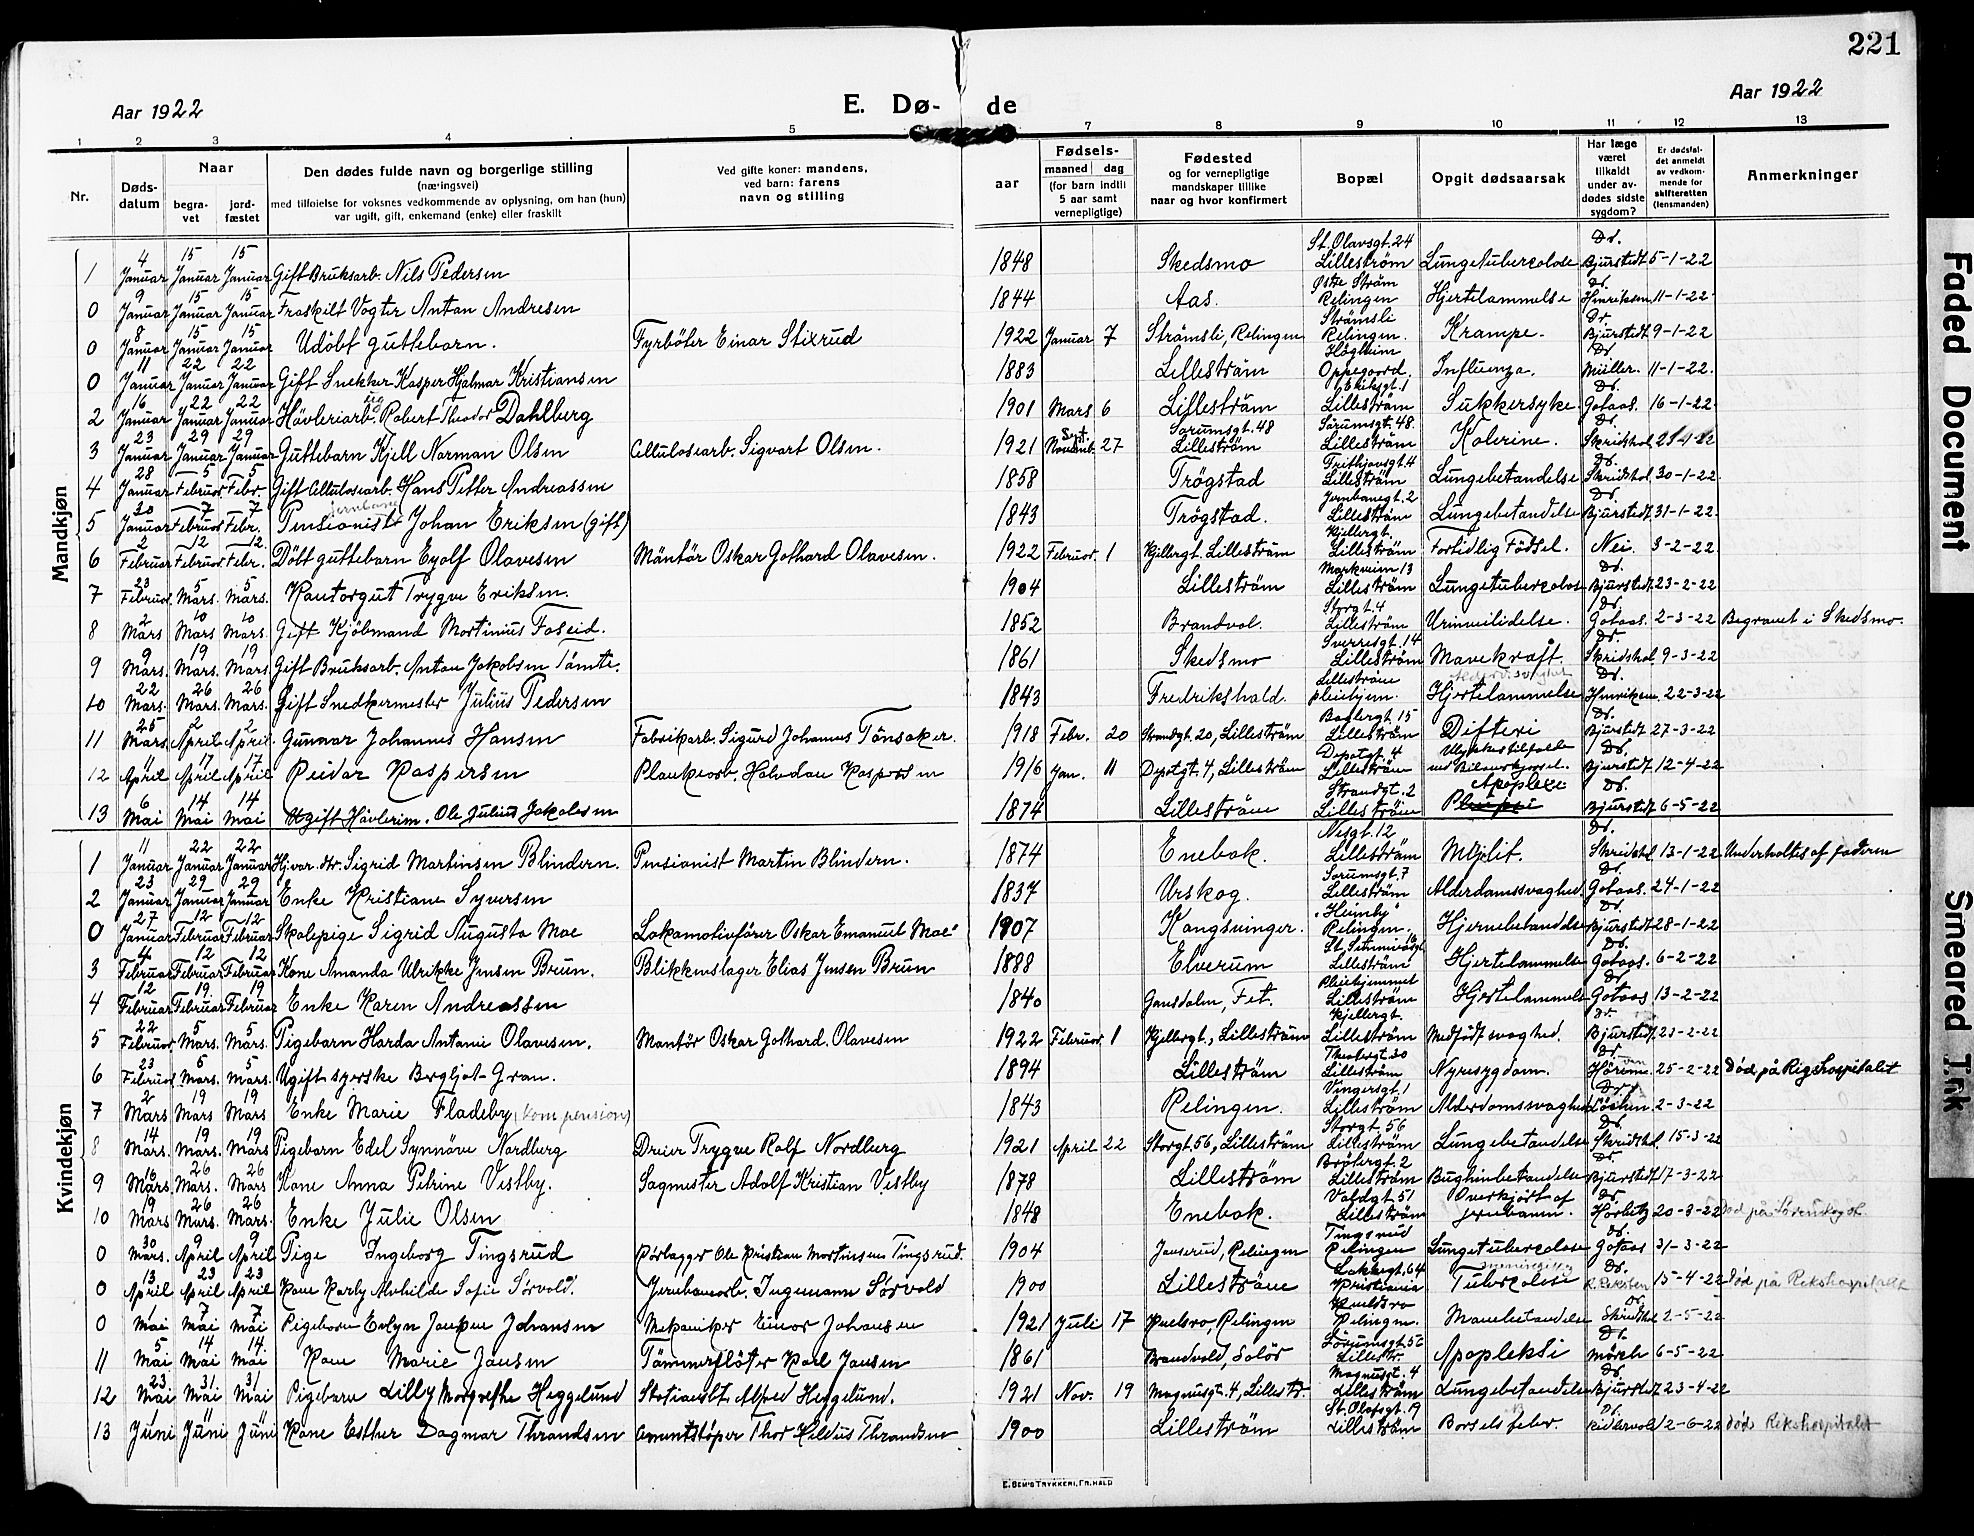 221
Aar 1922
E. Dø- de
Aar 1922
1 2 3 4 5 7 8 9 10 11 12 13
Nr.
Døds-
datum
Naar
begra-
vet
jord-
fæstet
Den dødes fulde navn og borgerlige stilling
(næringsvei)
med tilføielse for voksnes vedkommende av oplysning, om han (hun)
var ugift, gift, enkemand (enke) eller fraskilt
Ved gifte koner: mandens,
ved barn: farens
navn og stilling
aar
Fødsels-
maaned dag
(for barn indtil
5 aar samt
vernepligtige)
Fødested
og for vernepligtige
mandskaper tillike
naar og hvor konfirmert
Bopæl
Opgit dødsaarsak
Har læge
været
tilkaldt
under av-
dødes sidste
sygdom?
Er dødsfal-
det anmeldt
av vedkom-
mende for
skifteretten
(lensmanden)
Anmerkninger
Mandkjøn
1 4 Januar 15 Januar 15 Januar Gift Bruksarb. Nils Pedersen 1848 Skedsmo St. Olavsgt. 24 Lilleström Lungetuberculose Dr. Bjurstedt 5-1-22
0 9 Januar 15 Januar 15 Januar Fraskilt Vogter Anton Andresen 1844 Aas. Østre Ström Relingen Hjertelammelse Dr. Henriksen 11-1-22
0 8 Januar 15 Januar 15 Januar Udöbt guttebarn. Fyrböter Einar Stixrud 1922 Januar 7 Strömsli, Relingen Strömsli Relingen. Krampe. Dr. Bjurstedt 9-1-22
0 11 Januar 22 Januar 22 Januar Gift Snekker Kasper Hjalmar Kristiansen 1883 Lilleström Högheim Oppegoord. Influenza. Dr. Müller. 11-1-22.
2 16 Januar 22 Januar 22 Januar Hövleriarb. Robert Theodor Dahlberg 1901 Mars 6 Lilleström Lilleström Sukkersyke. Dr. Gotaas. 16-1-22.
3 23 Januar 29 Januar 29 Januar Guttebarn Kjell Norman Olsen Cellulosearb. Sigvart Olsen. 1921 Sept. 27 Sorumsgt. 48 Lilleström Sorumsgt. 48. Lilleström Kolerine. Dr.
4 28 Januar 5 Februar 5 Febr. Gift Cellulosearb. Hans Petter Andreassen 1858 Trögstad Frithjovsgt. 4 Lilleström Lungebetændelse Dr. 30-1-22
5 30 Januar 7 Februar 7 Febr. Pensionist Johan Eriksen (gift) 1843 Trögstad. Jernbanegt. 2 Lilleström Lungebetændelse Dr. Bjurstedt 31-1-22
6 2 Februar 12 Februar 12 Febr. Döbt guttebarn Eyolf Olavesen Montör Oskar Gothard Olavesen. 1922 Februar. 1 Kjellergt. Lilleström Kjellergt. Lilleström Fortidlig Födsel. Nei. 3-2-22
7 23 Februar 5 Mars. 5 Mars. Kontorgut Trygve Eriksen. 1904 Lilleström Markveien 13 Lilleström Lungetuberculose Dr. Bjurstedt 23-2-22
8 2 Mars 10 Mars 10 Mars. Gift Kjöbmand Mortinius Foseid. 1852 Brandval. Storgt. 4 Lilleström Urinveilidelse. Dr. Gotaas. 2-3-22 Begravet i Skedsmo.
9 9 Mars. 19 Mars. 19 Mars Gift Bruksarb. Anton Jakobsen Tömte. 1861 Skedsmo Sverresgt. 14 Lilleström Mavekræft. Dr. 9-3-22
10 22 Mars. 26 Mars. 26 Mars. Gift Snedkermester Julius Pedersen 1843 Fredrikshald. Lilleström pleiehjem. Hjertelammelse Dr. Henriksen 22-3-22
11 25 Mars. 2 April 2 April. Gunnar Johannes Hansen Fabrikarb. Sigurd Johannes Tönsaker. 1918 Febr. 20 Strandgt. 20, Lilleström Lilleström Difteri Dr. Bjurstedt 27-3-22
12 11 April 17 April 17 April Reidar Kaspersen Plankearb. Halvdan Kaspersen 1916 Jan. 11 Depotgt. 4, Lilleström Depotgt. 4 Lilleström Ulykkestilfælde ved Bilomkjörsel. Dr. Bjurstedt 12-4-22
13 6 Mai 14 Mai 14 Mai Ugift Hövlerim. Ole Julius Jakobsen 1874 Lilleström Strandgt. 2 Lilleström Apoplexi Dr. Bjurstedt 6-5-22
Kvindekjøn
1 11 Januar 22 Januar 22 Januar Hjvær. dtr. Sigrid Martinsen Blindern. Pensionist Martin Blindern. 1874 Enebak. Nesgt. 12 Lilleström Dr. 13-1-22 Underholtes af faderen
2 23 Januar 29 Januar 29 Januar Enke Kristiane Syversen 1837 Urskog. Sorumsgt. 7 Lilleström Alderdomssvaghed Dr. Gotaas. 24-1-22
0 27 Januar 12 Februar 12 Februar Skolepige Sigrid Augusta Moe Lokomotivförer Oskar Emanuel Moe 1907 Kongsvinger. "Heimly" Relingen. Hjernebetændelse Dr. Bjurstedt 28-1-22
3 4 Februar 12 Februar 12 Februar Kone Amanda Ulrikke Jensen Brun. Blikkenslager Elias Jensen Brun 1888 Elverum Lilleström Hjertelammelse Dr. Gotaas. 6-2-22
4 12 Februar 19 Februar 19 Februar Enke Karen Andreassen 1840 Gansdalen, Fet. Pleiehjemmet Lilleström Hjertelammelse Dr. Gotaas 13-2-22
5 22 Februar 5 Mars. 5 Mars. Pigebarn Harda Antonie Olavesen. Montör Oskar Gothard. Olavesen 1922 Februar 1 Kjellergt., Lilleström Kjellergt. Lilleström Medfödt svaghed. Dr. Bjurstedt. 23-2-22
6 23 Februar 5 Mars. 5 Mars. Ugift syerske Bergljot Gran. 1894 Lilleström Lilleström Nyresygdom. Dr. 25-2-22 Död på Rigshospitalet
7 2 Mars 19 Mars 19 Mars Enke Marie Fladeby (kom. pension) 1843 Relingen. Vingersgt. 1 Lilleström Alderdomsvaghed Dr. 2-3-22
8 14 Mars. 19 Mars. 19 Mars. Pigebarn Edel Synnöve Nordberg Dreier Trygve Rolf Nordberg 1921 April 22 Storgt. 56, Lilleström Storgt. 56 Lilleström Lungebetændelse Dr. 15-3-22
9 16 Mars. 26 Mars. 26 Mars Kone Anna Petrine Vestby. Sagmester Adolf Kristian Vestby 1878 Lilleström Lilleström Bughinbetændelse Dr. Bjurstedt 17-3-22
10 19 Mars 26 Mars. 26 Mars. Enke Julie Olsen 1848 Enebak. Voldgt. 51 Lilleström Overkjört af jernbanen. Dr. 20-3-22
0 30 Mars. 9 April 9 April Pige Ingeborg Tingsrud Rörlegger Ole Kristian Mortinsen Tingsrud. 1904 Relingen Tingsrud Relingen Lungetuberculose Dr. Gotaas 31-3-22
0 13 April 23 April 23 April Kone Karly Alvhilde Sofie Sörvold. Jernbanearb. Ingemann Sörvold 1900 Lilleström Lakkegt. 64 Kristiania Tuberculose Dr. 15-4-22 Död på Rikshospitalet
0 1 Mai 7 Mai 7 Mai Pigebarn Evlyn Johansen Mekaniker Einar Johansen 1921 Juli 17 Relingen Relingen. Dr. 2-5-22
11 5 Mai 14 Mai 14 Mai Kone Marie Jansen Tömmerflöter Karl Jansen 1861 Brandvold, Solör Sörumsgt. 56 Lillestr. Apopleksi Dr. Mörch 6-5-22
12 23 Mai 31 Mai 31 Mai Pigebarn Lilly Margrethe Heggelund Alfred Heggelund. 1921 Nov. 19 Magnusgt. 4, Lillestr. Magnusgt. 4 Lilleström Lungebetændelse Dr. Bjurstedt 23-4-22
13 Juni Juni Juni Kone Esther Dagmar Thrandsen Thor Hildus Thrandsen 1900 Lilleström St. Olafsgt. 19 Lilleström Barselsfeber. Dr. 12-6-22 Död Rikshospitalet
E. Sem's Trykkeri, Fr.hald
Faded Document
Smeared Ink